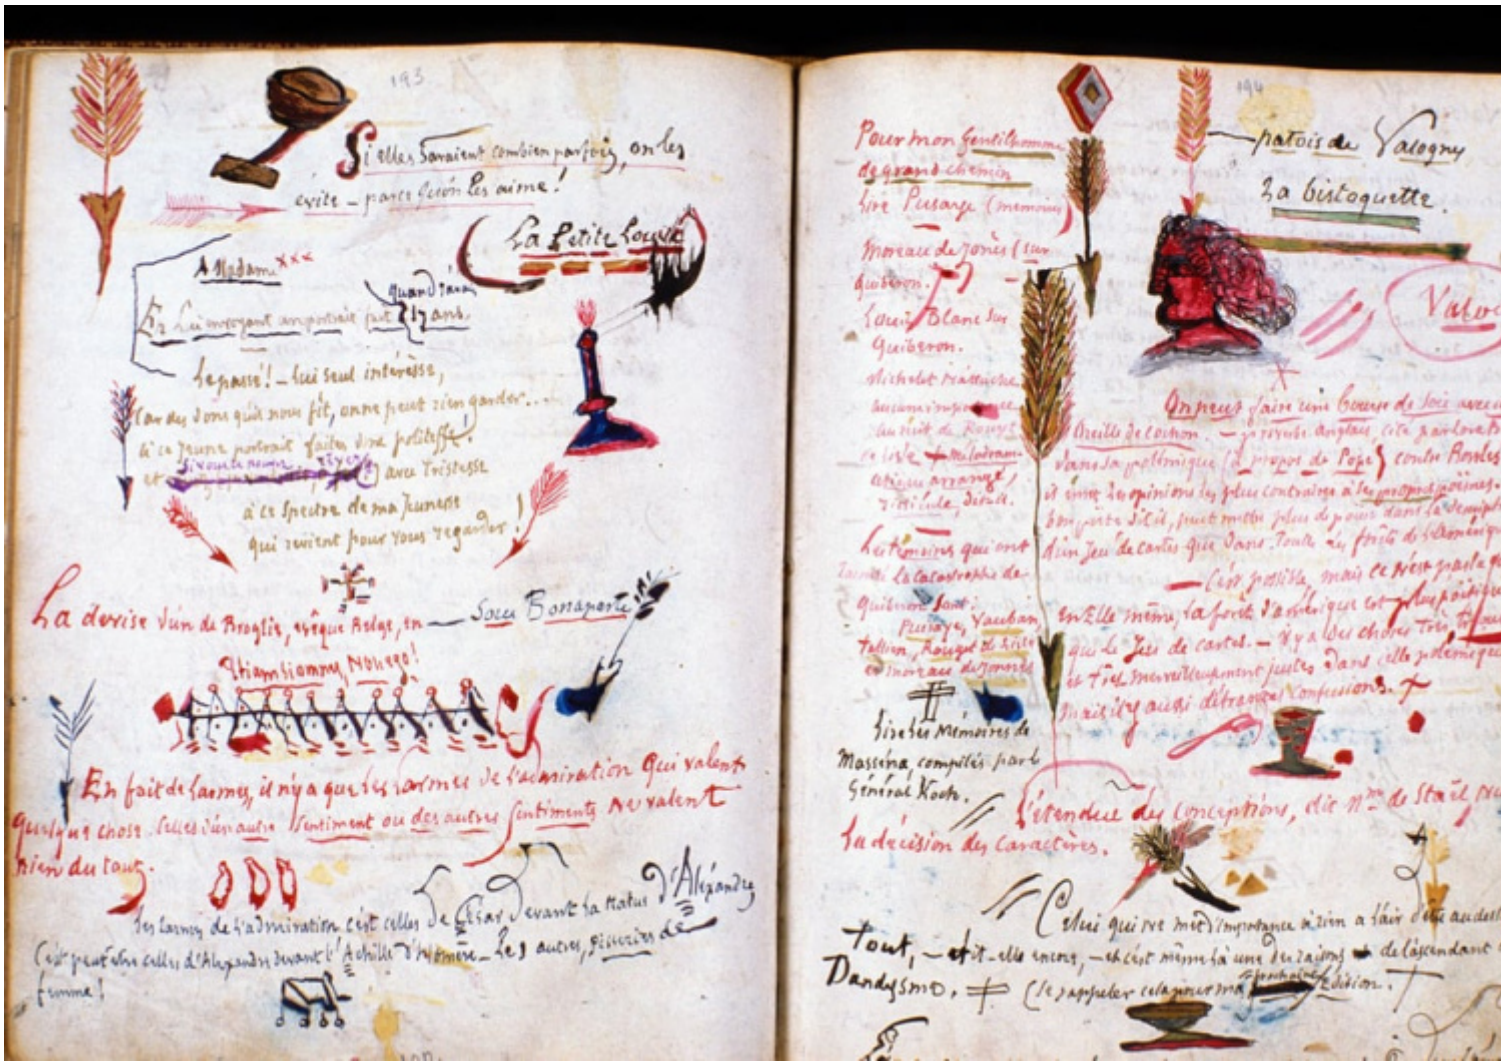 193
Si elles savaient combien parfois, on les
évite – parce qu'on les aime!
La Petite Louve
A Madame xxx
En lui envoyant un portrait fait quand j'avais 17 ans.
Le passé! – lui seul intéresse,
Car des dons qu'il nous fit, on ne peut rien garder...
à ce jeune portrait faites une politesse!
et avec tristesse
à ce spectre de ma jeunesse
qui revient pour vous regarder!
La devise d'un de Broglie, évêque Belge, en — sous Bonaparte
En fait de larmes, il n'y a que les larmes de l'admiration qui valent
quelque chose. Celles d'un autre sentiment ou des autres sentiments ne valent
rien du tout.
Les larmes de l'admiration c'est celles de César devant la statue d'Alexandre
C'est peut-être celles d'Alexandre devant l'Achille d'Homère – Les autres, pisseries de
femme!
194
Pour mon Gentilhomme
de grand chemin
lire Puisaye (memoires)
Moreau de Jonès (sur
Quiberon.
Louis Blanc sur
Quiberon.
Michelet n'attache
aucune importance
au récit de Rouget
de lisle + Mélodrame
arrangé,
ridicule, dit-il.
Les témoins qui ont
raconté la catastrophe de
Quiberon sont
Puisaye, Vauban
Tallien, Rouget de lisle
et moreau de Jonnès
Lire les Mémoires de
Masséna, compilés par le
Général Koch.
patois de Valognes
La bistoquette.
Valo
On peut faire une bourse de soie avec
Oreille de cochon. – proverbe anglais, cité par lord
dans sa polémique (à propos de Pope) contre Bowles
il émet les opinions les plus contraires à ses propres poëmes.
bon poëte dit-il, peut mettre plus de poësie dans la
d'un Jeu de cartes que dans toutes les forêts de l'amérique
– C'est possible, mais ce n'est pas la
en Elle même, la forêt d'amérique est plus poétique
que le Jeu de cartes. – il y a des choses très,
et très merveilleusement justes dans cette polémique
mais il y aussi d'étranges confusions. +
L'étendue des conceptions, dit Mme de Staël,
la décision des caractères.
Celui qui ne met d'importance à rien a l'air d'être au dessus
Tout, – dit-elle encore, – et c'est même là une des raisons de l'ascendant
Dandysme. (Se rappeler cela pour ma prochaine Edition.